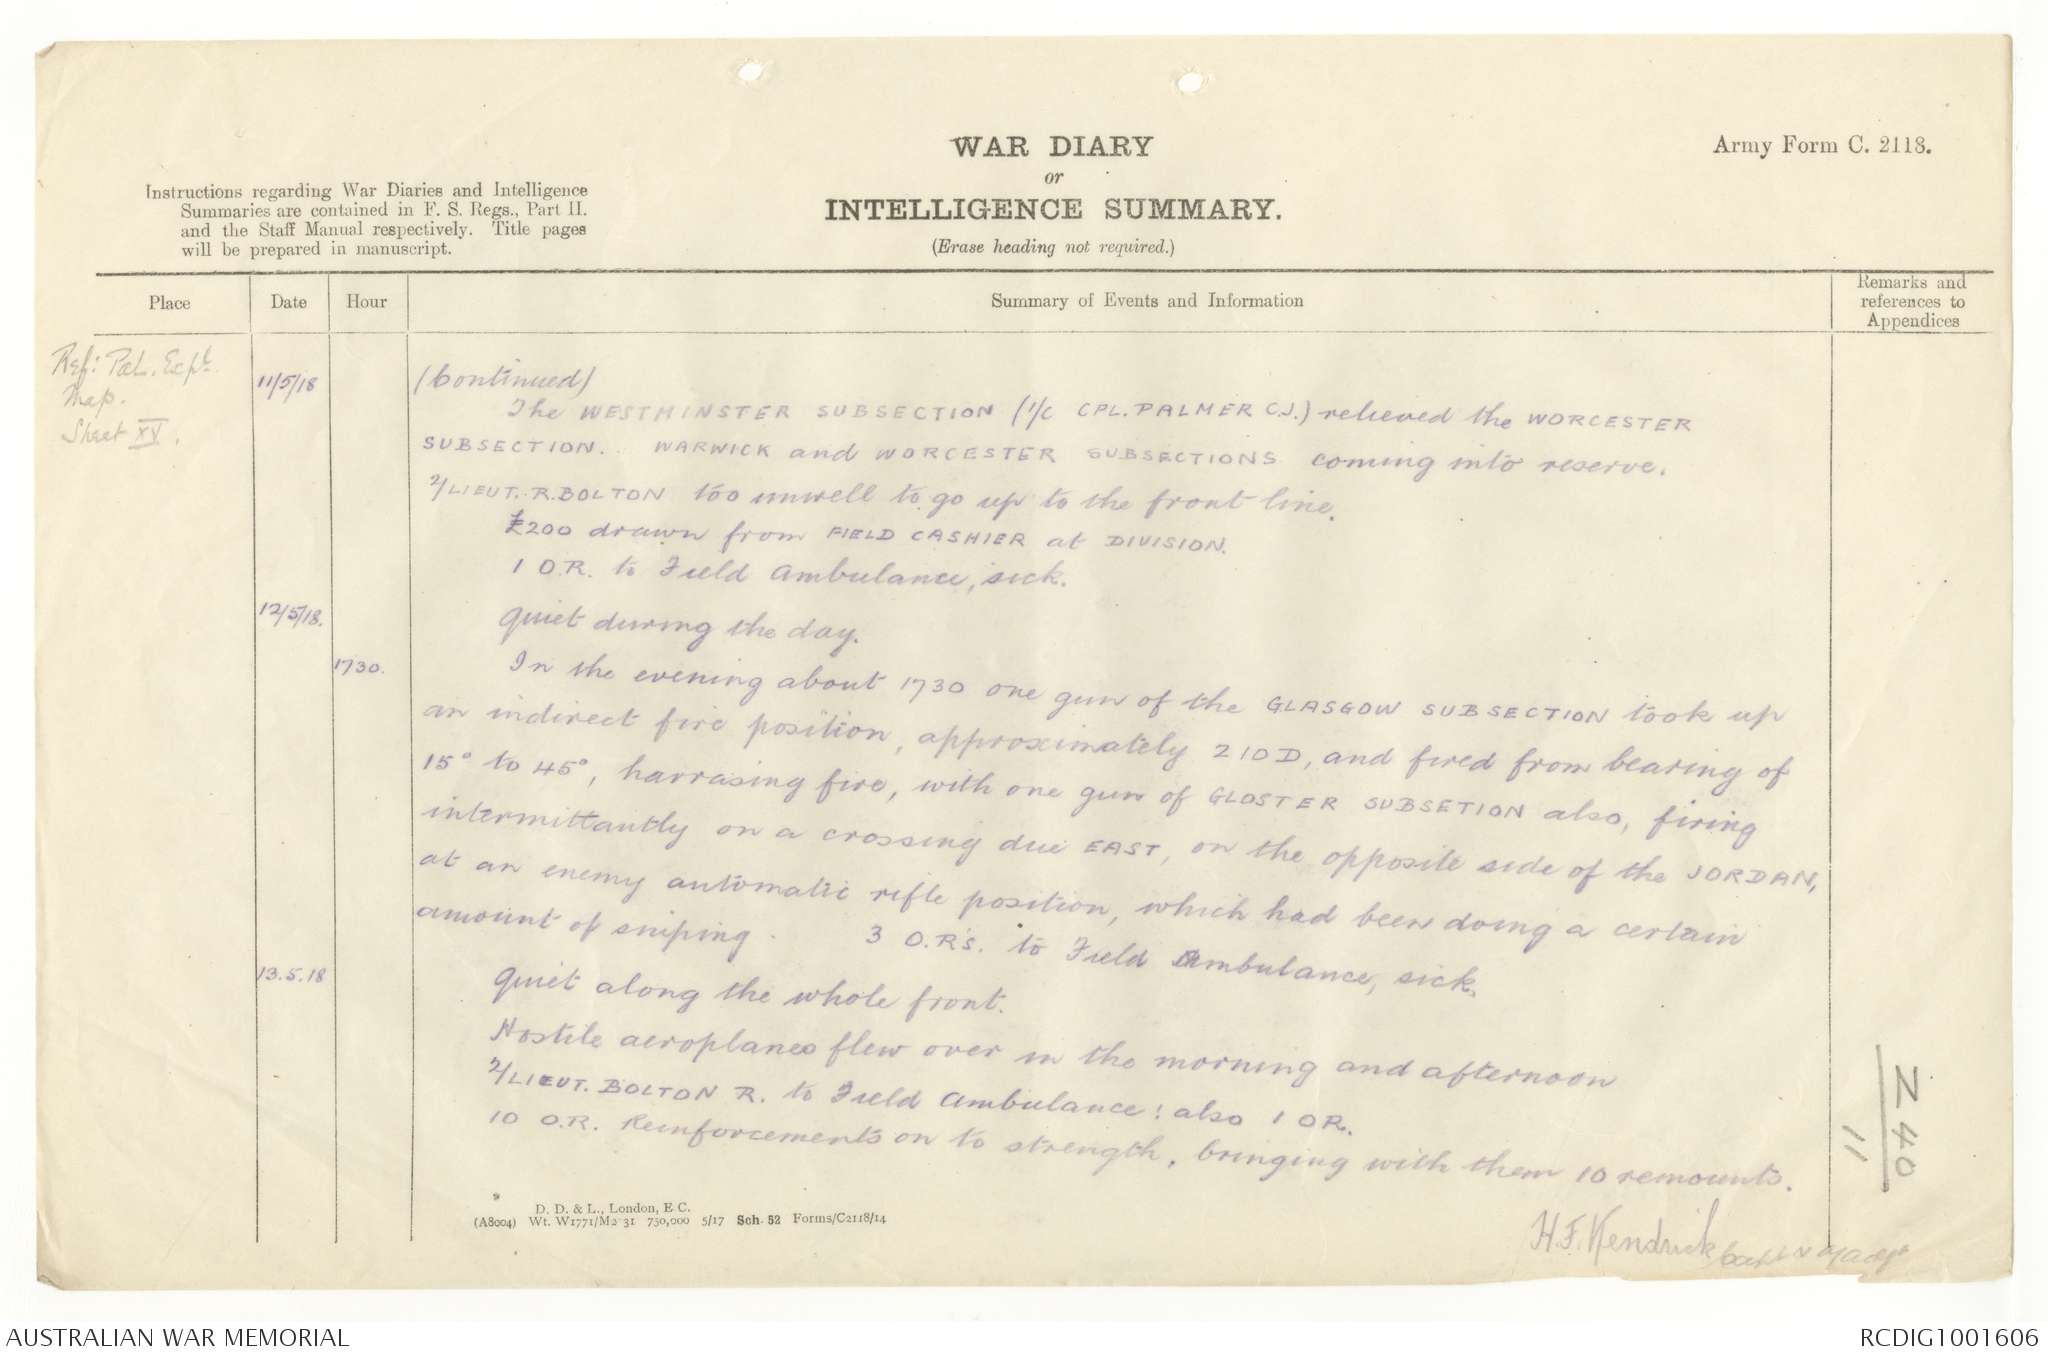 WAR DIARY
or
INTELLIGENCE SUMMARY.
(Erase heading not required.)
Army Form C. 2118.
Instructions regarding War Diaries and Intelligence
Summaries are contained in F. S. Regs., Part II.
and the Staff Manual respectively. Title pages
will be prepared in manuscript.
Place Date Hour Summary of Events and Information Remarks and
references to
Appendices
Ref: Pal. Expl.
Map.
Sheet XV.
11/5/18 (Continued)
The WESTMINSTER SUBSECTION (I/C CPL. PALMER C.J.) relieved the WORCESTER
SUBSECTION. WARWICK and WORCESTER SUBSECTIONS coming into reserve.
2/LIEUT. R. BOLTON too unwell to go up to the front line.
£200 drawn from FIELD CASHIER at DIVISION.
1 O.R. to Field Ambulance, sick.
12/5/18. Quiet during the day.
1730. In the evening about 1730 one gun of the GLASGOW SUBSECTION took up
an indirect fire position, approximately 210D, and fired from bearing of
15° to 45°, harrasing fire, with one gun of GLOSTER SUBSETION also, firing
intermittantly on a crossing due EAST, on the opposite side of the JORDAN,
at an enemy automatic rifle position, which had been doing a certain
amount of sniping. 3 O.R's. to Field Ambulance, sick.
13.5.18 Quiet along the whole front.
Hostile aeroplanes flew over in the morning and afternoon
2/LIEUT. BOLTON R. to Field Ambulance: also 1 OR.
10 O.R. Reinforcements on to strength, bringing with them 10 remounts.
Z 40
11
D. D. & L., London, E.C.
(A8004) Wt. W1771/M2 31 750,000 5/17 Sch. 52 Forms/C2118/14
H.F. Kendrick Capt &
AUSTRALIAN WAR MEMORIAL
RCDIG1001606